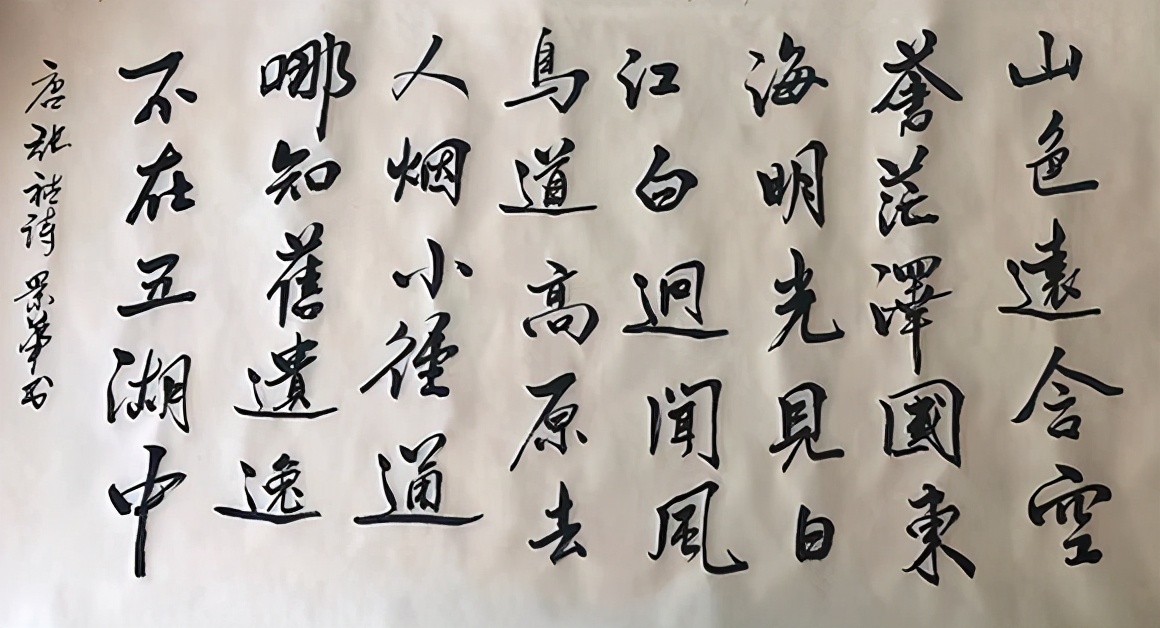 山色遠含空
蒼茫澤國東
海明光見日
江白逈聞風
鳥道高原去
人烟小徑通
哪知舊遺逸
不在五湖中
唐张祜诗 景華书